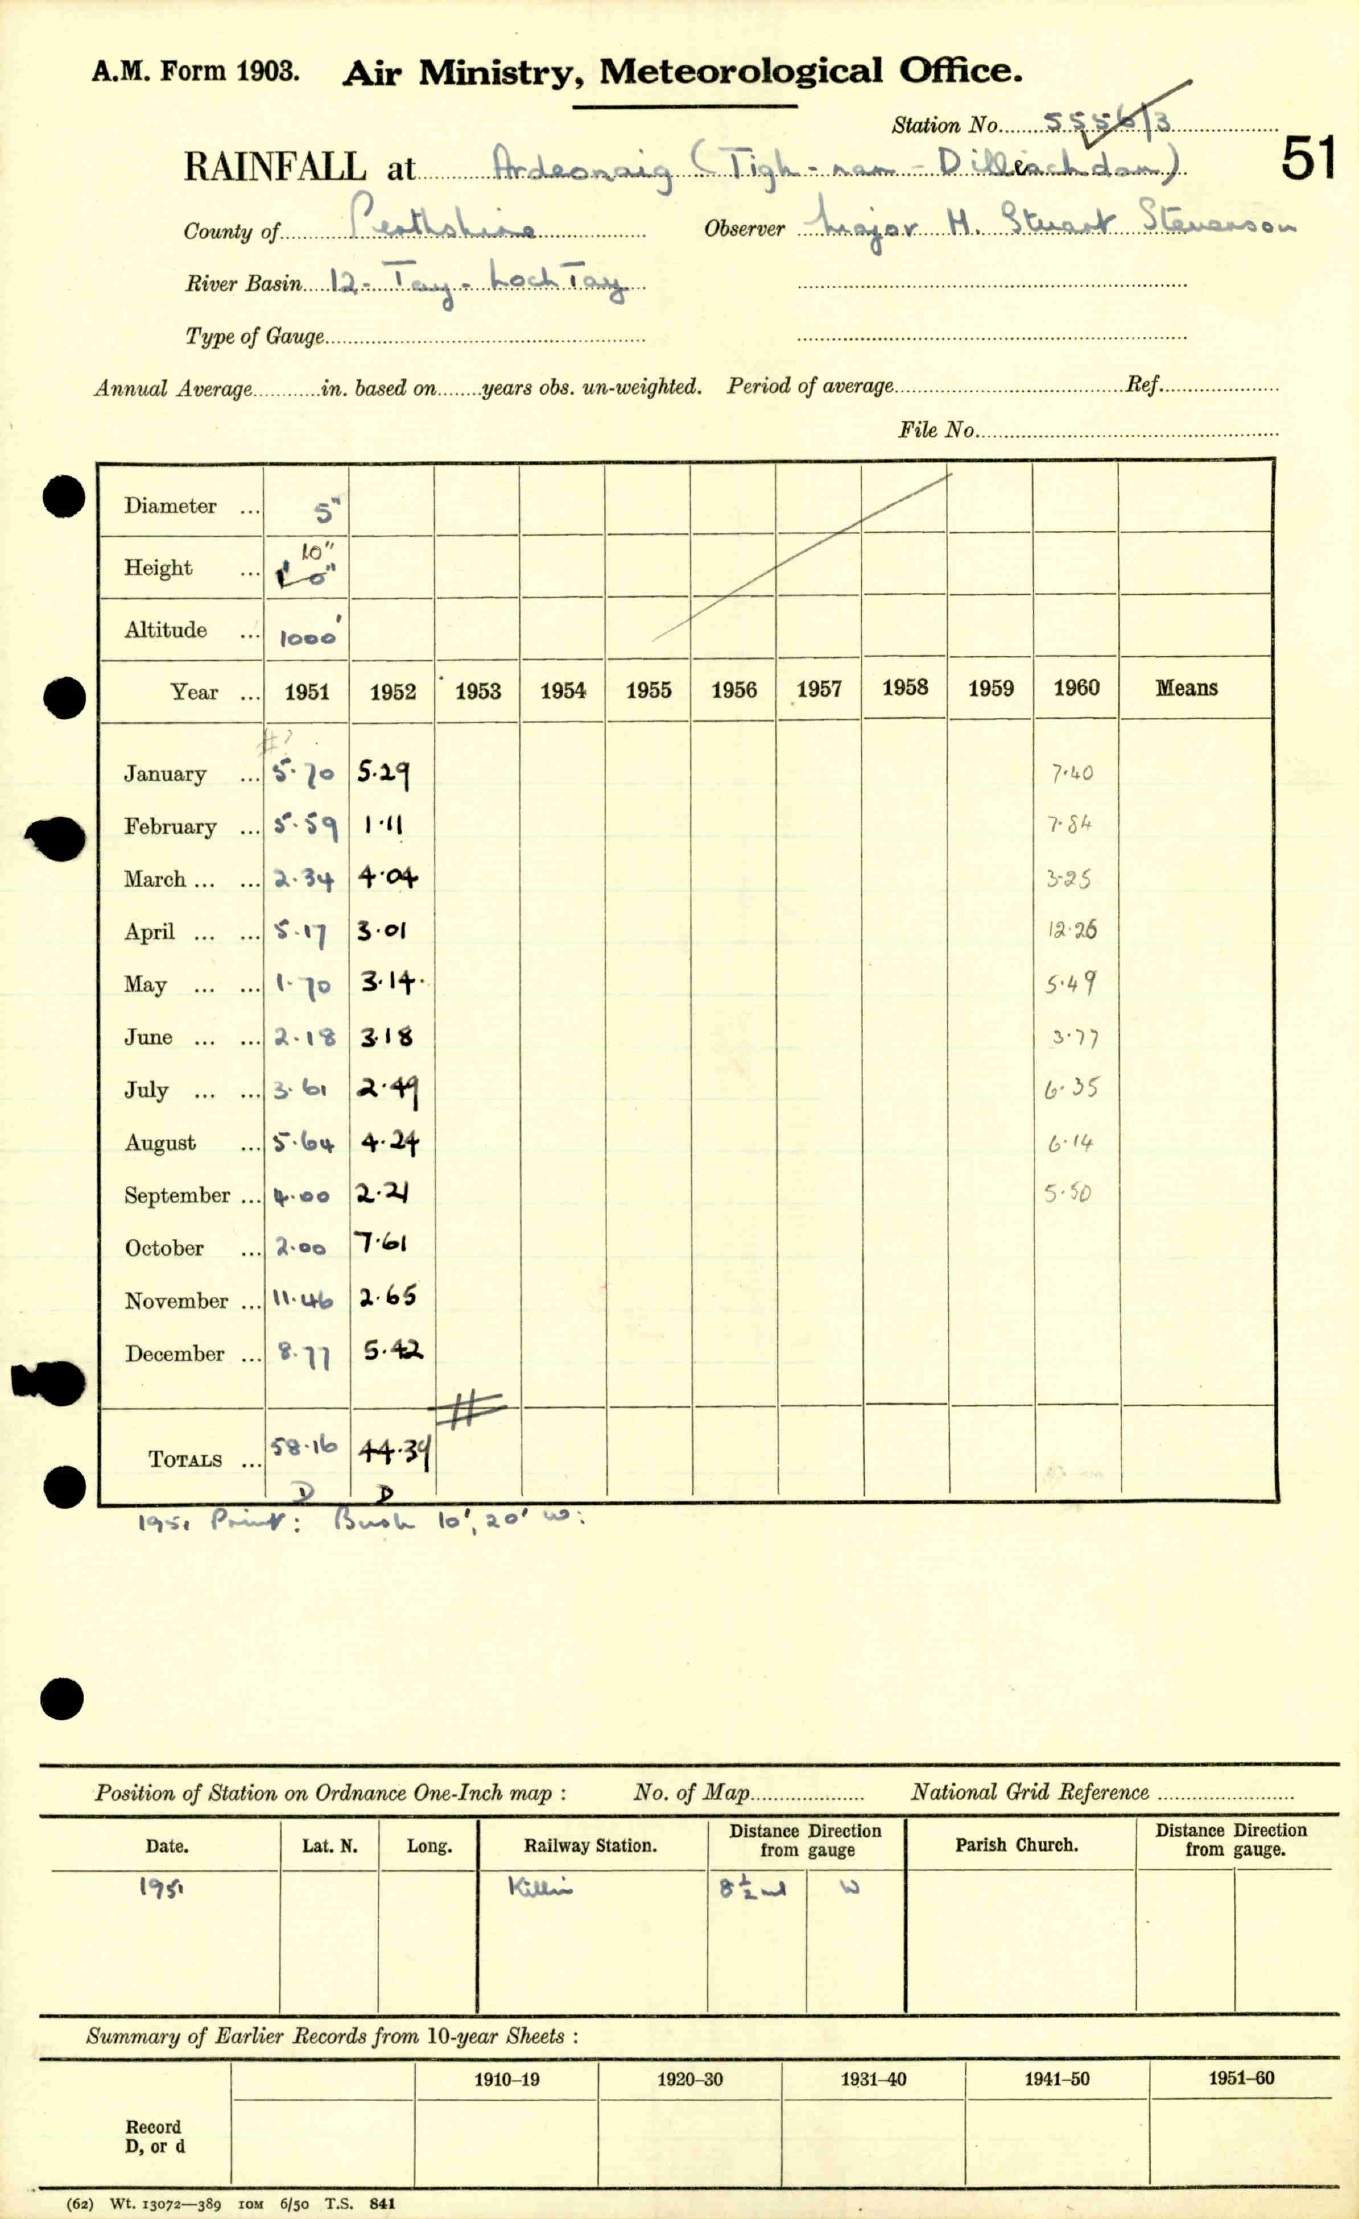 A.M. Form 1903. Air Ministry, Meteorological Office.
Station No. 5556/3
51
RAINFALL at Ardeonaig (Tigh-nan-Dilleachdan)
County of Perthshire Observer Major H. Stuart Stevenson
River Basin 12- Tay- Loch Tay
Type of Gauge
Annual Average in. based on years obs. un-weighted. Period of average Ref.
File No.
Diameter ... 5"
10"
Height ... 1' 0"
Altitude ... 1000'
Year ... 1951 1952 1953 1954 1955 1956 1957 1958 1959 1960 Means
#?
January ... 5.70 5.29 7.40
February ... 5.59 1.11 7.84
March ... ... 2.34 4.04 3.25
April ... ... 5.17 3.01 12.26
May ... ... 1.70 3.14 5.49
June ... ... 2.18 3.18 3.77
July ... ... 3.61 2.49 6.35
August ... 5.64 4.24 6.14
September ... 4.00 2.21 5.50
October ... 2.00 7.61
November ... 11.46 2.65
December ... 8.77 5.42
#
TOTALS ... 58.16 44.39
D D
1951 Print: Bush 10', 20' W:
Position of Station on Ordnance One-Inch map : No. of Map National Grid Reference
Date. Lat. N. Long. Railway Station. Distance Direction from gauge Parish Church. Distance Direction from gauge.
1951 Killin 8½ ml W
Summary of Earlier Records from 10-year Sheets :
1910–19 1920–30 1931–40 1941–50 1951–60
Record
D, or d
(62) Wt. 13072—389 10M 6/50 T.S. 841